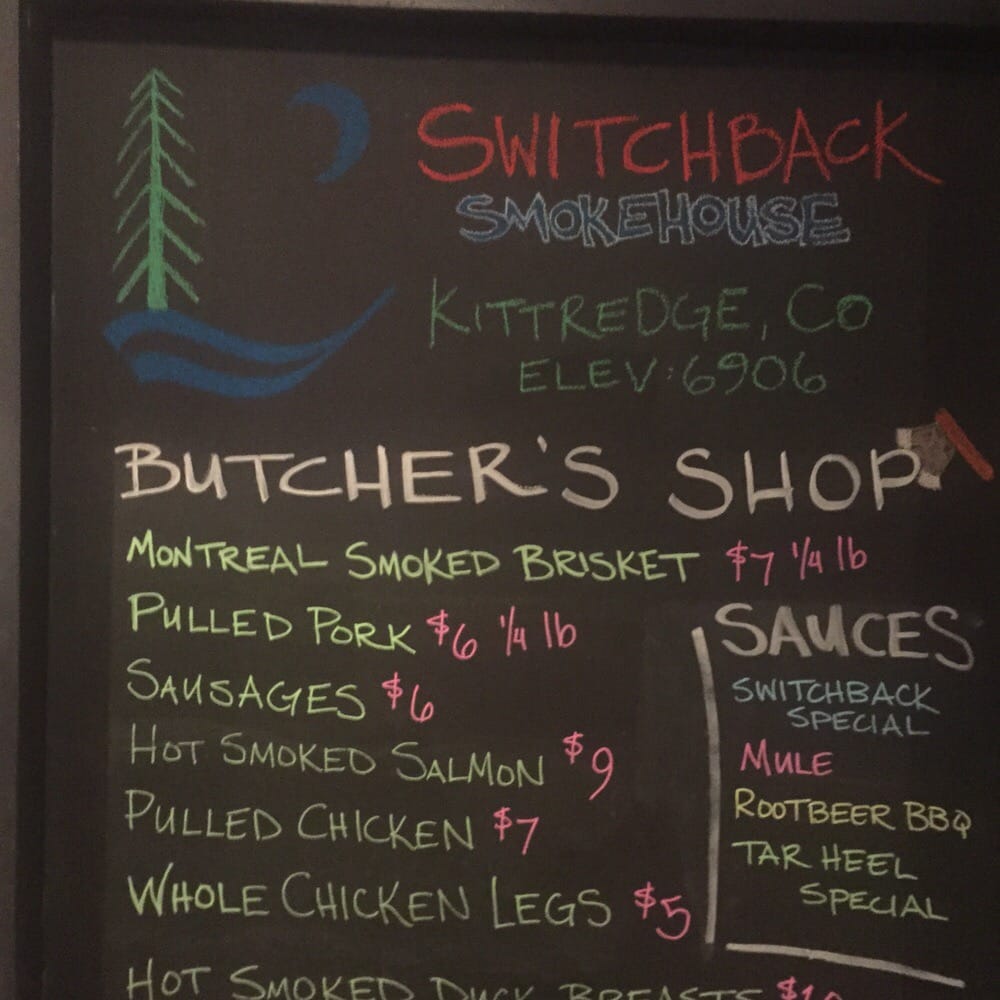 SWITCHBACK
SMOKEHOUSE
KITTREDGE, CO
ELEV: 6906
BUTCHER'S SHOP
MONTREAL SMOKED BRISKET $7 1/4 lb
PULLED PORK $6 1/4 lb
SAUSAGES $6
HOT SMOKED SALMON $9
PULLED CHICKEN $7
WHOLE CHICKEN LEGS $5
HOT SMOKED DUCK BREASTS
SAUCES
SWITCHBACK
SPECIAL
MULE
ROOTBEER BBQ
TAR HEEL
SPECIAL